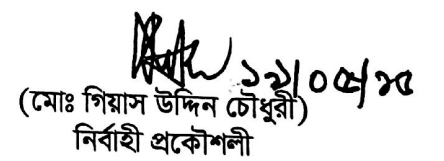 ১২/০৫/২৫
(মোঃ গিয়াস উদ্দিন চৌধুরী)
নির্বাহী প্রকৌশলী